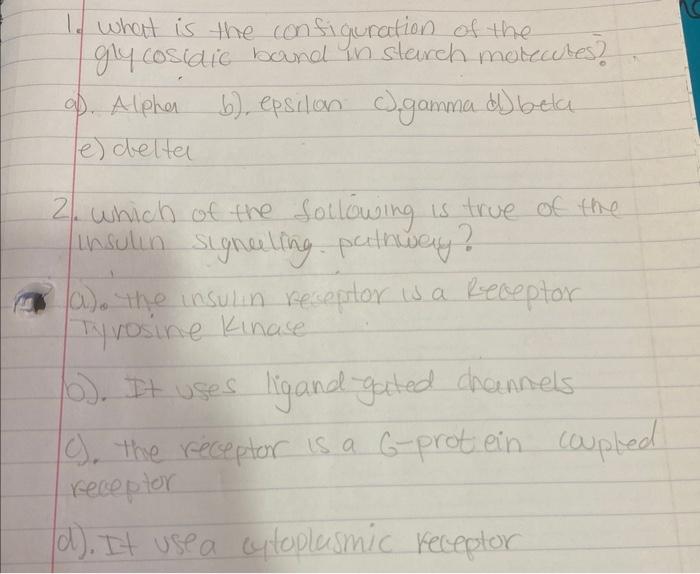 1. what is the configuration of the
glycosidic band in starch molecules?
a). Alpha b). epsilon c). gamma d) beta
e) delta
2. which of the following is true of the
insulin signalling pathway?
a). the insulin receptor is a Receptor
Tyrosine Kinase
b). It uses ligand-gated channels
c). the receptor is a G-protein coupled
receptor
d). It use a cytoplasmic receptor